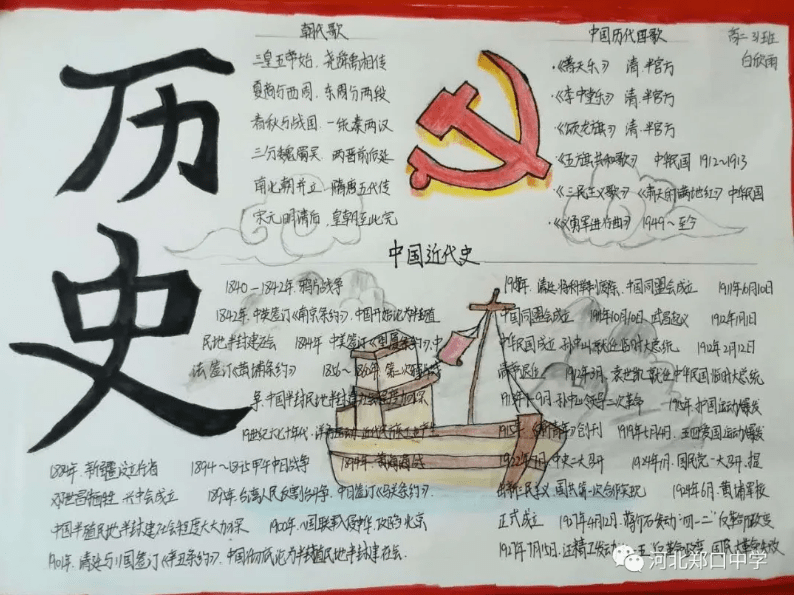 历史
朝代歌
三皇五帝始，尧舜禹相传
夏商与西周，东周分两段
春秋与战国，一统秦两汉
三分魏蜀吴，两晋前后延
南北朝并立，隋唐五代传
宋元明清后，皇朝至此完
中国历代国歌
高二31班
白欣雨
·《普天乐》 清·半官方
·《李中堂乐》 清·半官方
·《颂龙旗》 清·半官方
·《五旗共和歌》 中华民国 1912～1913
·《三民主义歌》《青天白日满地红》中华民国
·《义勇军进行曲》 1949～至今
中国近代史
1840－1842年，鸦片战争
1842年，中英签订《南京条约》，中国开始沦为半殖
民地半封建社会 1844年 中美签订《望厦条约》，中
法签订《黄埔条约》 1856～1860年，第二次鸦片战
争，中国半封民地半封建社会程度加深
19世纪六七十年代，洋务运动，近代民族工业产生
1884年，新疆设行省 1894～1895甲午中日战争 1894年，黄海海战
邓世昌牺牲，兴中会成立 1895年，台湾人民反割台斗争，中日签订《马关条约》，
中国半殖民地半封建社会程度大大加深 1900年，八国联军侵华，攻陷北京
1901年，清政府与11国签订《辛丑条约》，中国彻底沦为半殖民地半封建社会.
1905年，清廷 中国同盟会成立 1911年6月10日
中国同盟会成立 1911年10月10日，武昌起义 1912年1月1日
中华民国成立，孙中山就任临时大总统 1912年2月12日
清帝退位 1912年3月，袁世凯就任中华民国临时大总统
孙中山领导二次革命 1915年，护国运动爆发
1915年，《新青年》创刊 1919年5月4日，五四爱国运动爆发
1922年7月，中共二大召开 1924年1月，国民党一大召开，提
出新三民主义，国共第一次合作实现 1924年6月，黄埔军校
正式成立 1927年4月12日，蒋介石发动“四一二”反革命政变
1927年7月15日，汪精卫发动 反革命政变，国民大革命失败
河北郑口中学